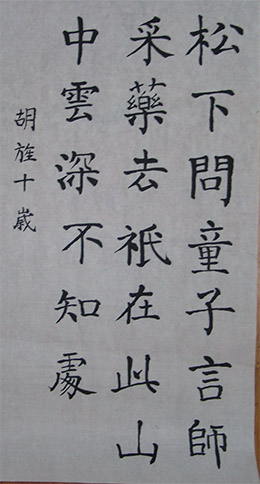 松下問童子言師
采藥去祇在此山
中雲深不知處
胡旌十歲